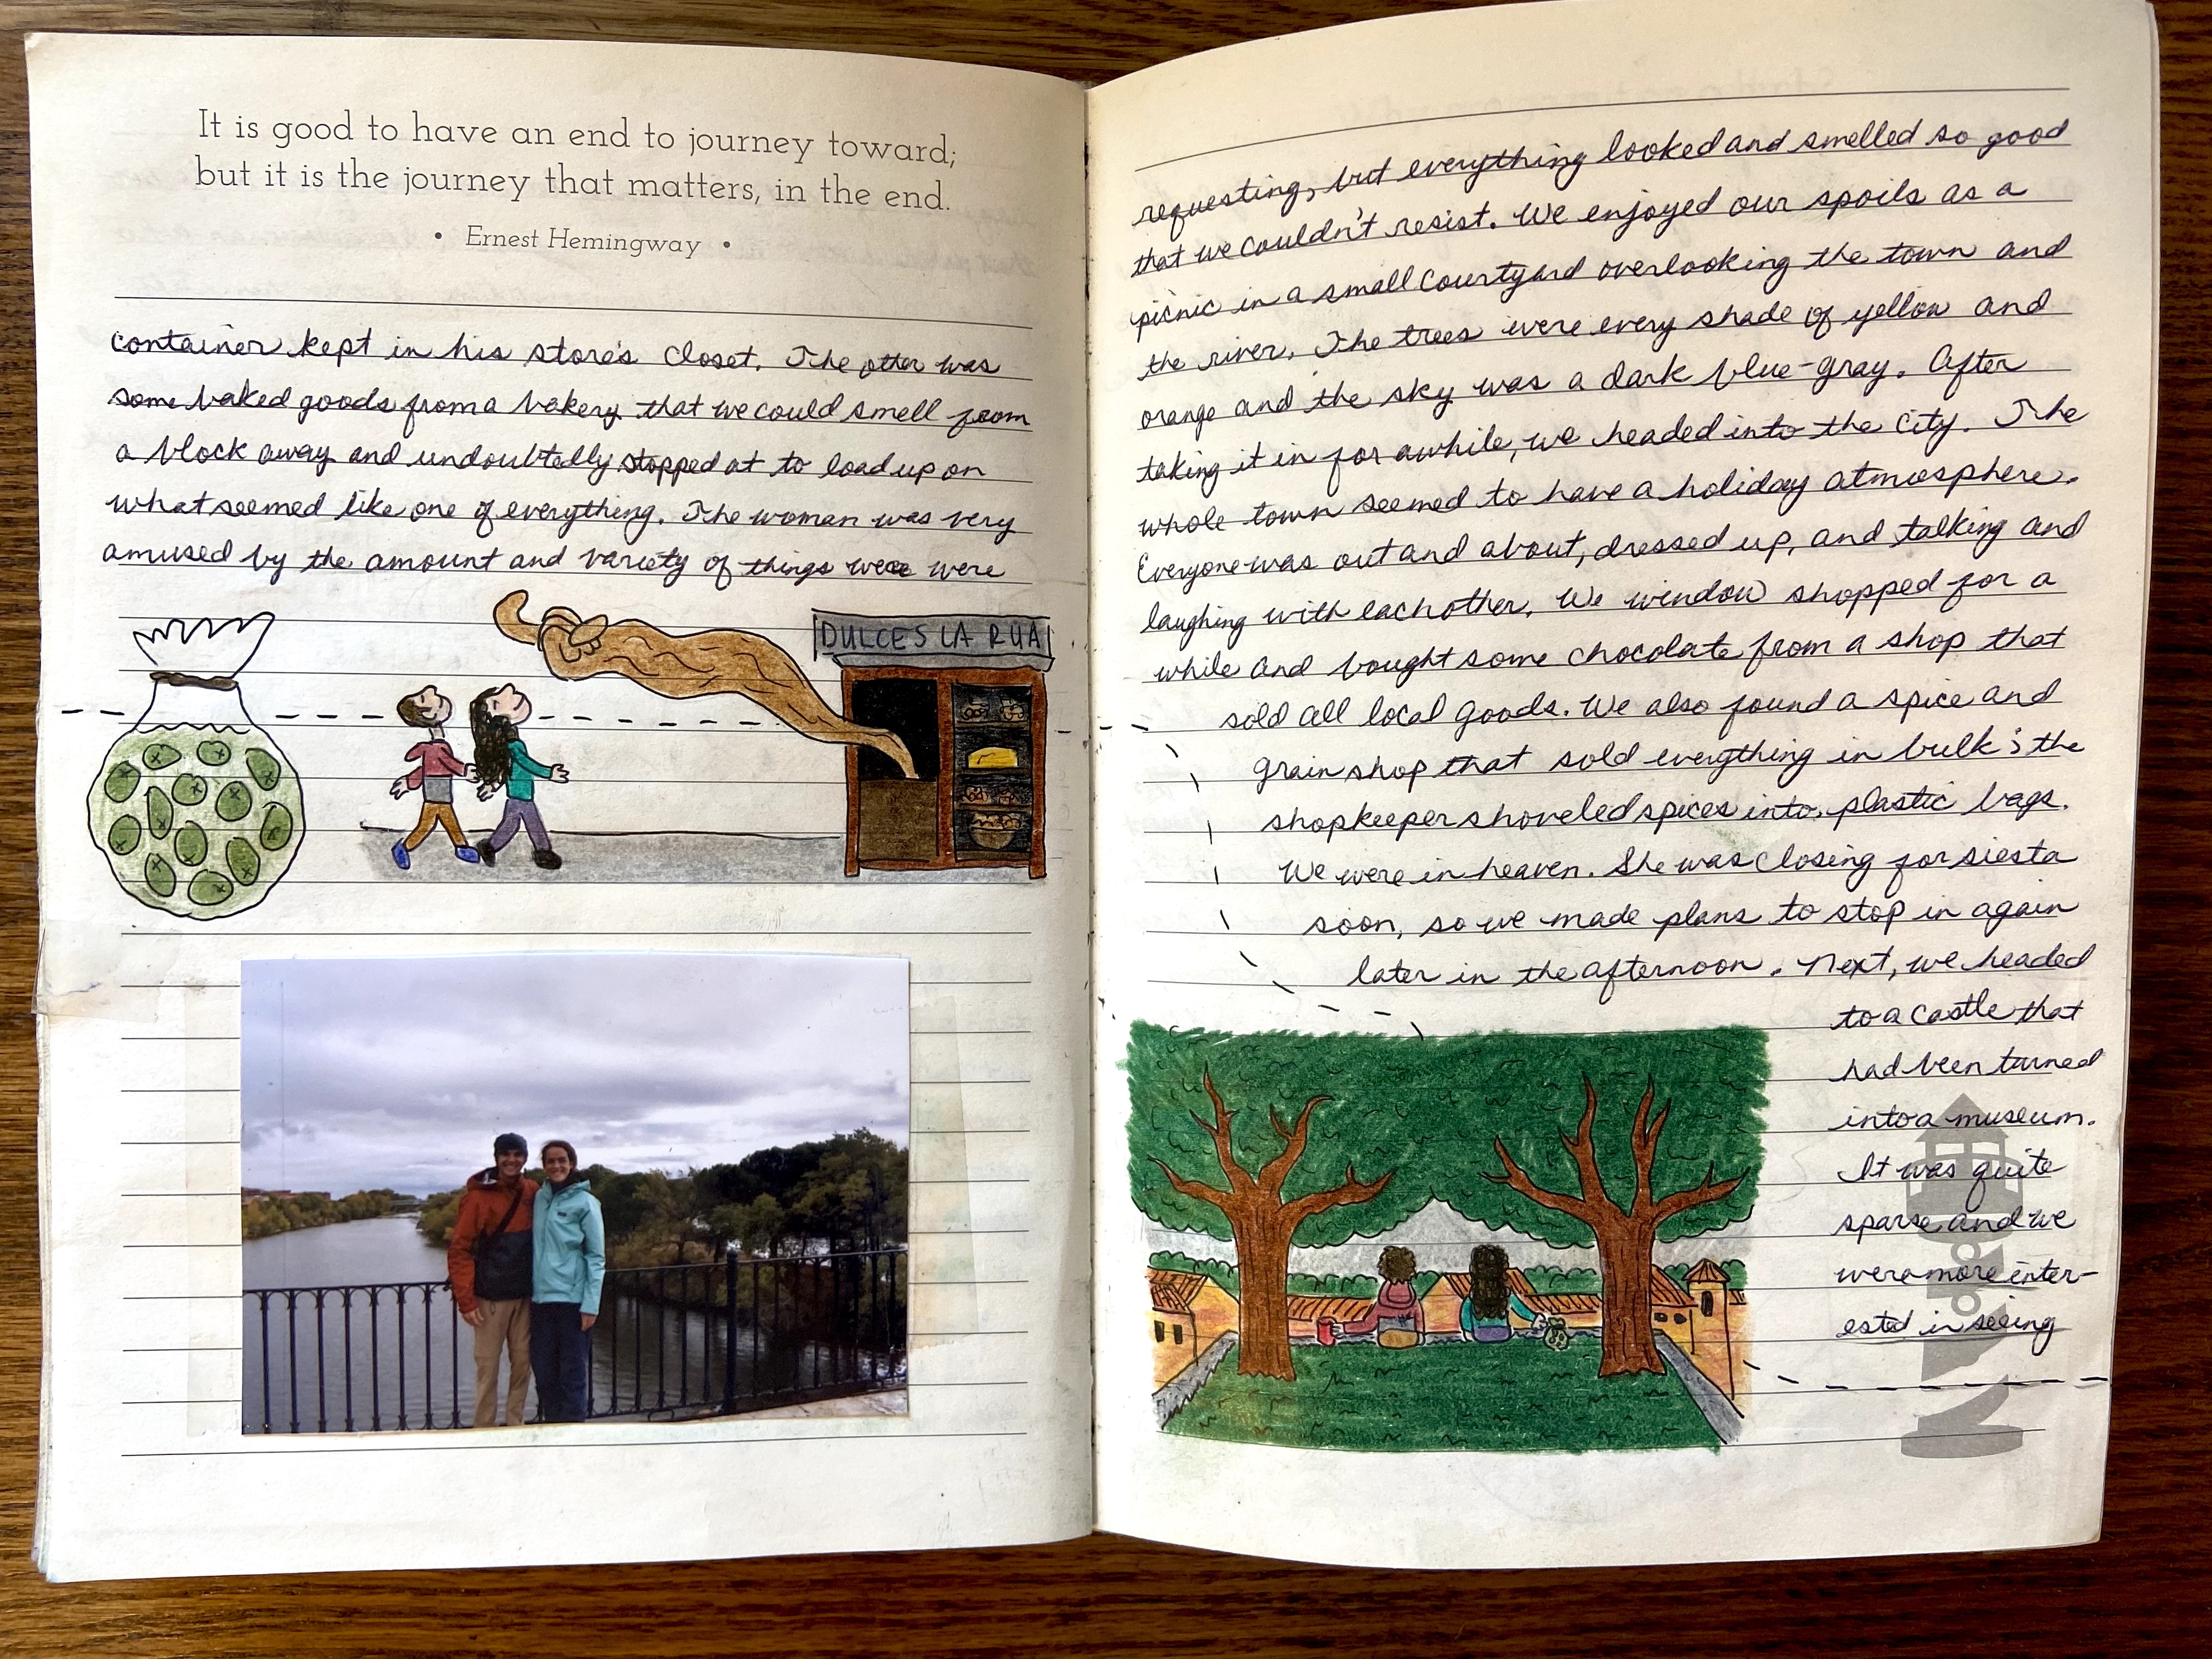 It is good to have an end to journey toward;
but it is the journey that matters, in the end.
• Ernest Hemingway •
container kept in his store's closet. The other was
some baked goods from a bakery that we could smell from
a block away and undoubtedly stopped at to load up on
what seemed like one of everything. The woman was very
amused by the amount and variety of things were were
DULCES LA RUA
requesting, but everything looked and smelled so good
that we couldn't resist. We enjoyed our spoils as a
picnic in a small courtyard overlooking the town and
the river. The trees were every shade of yellow and
orange and the sky was a dark blue-gray. After
taking it in for awhile, we headed into the city. The
whole town seemed to have a holiday atmosphere.
Everyone was out and about, dressed up, and talking and
laughing with eachother. We window shopped for a
while and bought some chocolate from a shop that
sold all local goods. We also found a spice and
grain shop that sold everything in bulk; the
shopkeeper shoveled spices into plastic bags.
We were in heaven. She was closing for siesta
soon, so we made plans to stop in again
later in the afternoon. Next, we headed
to a castle that
had been turned
into a museum.
It was quite
sparse and we
were more inter-
ested in seeing